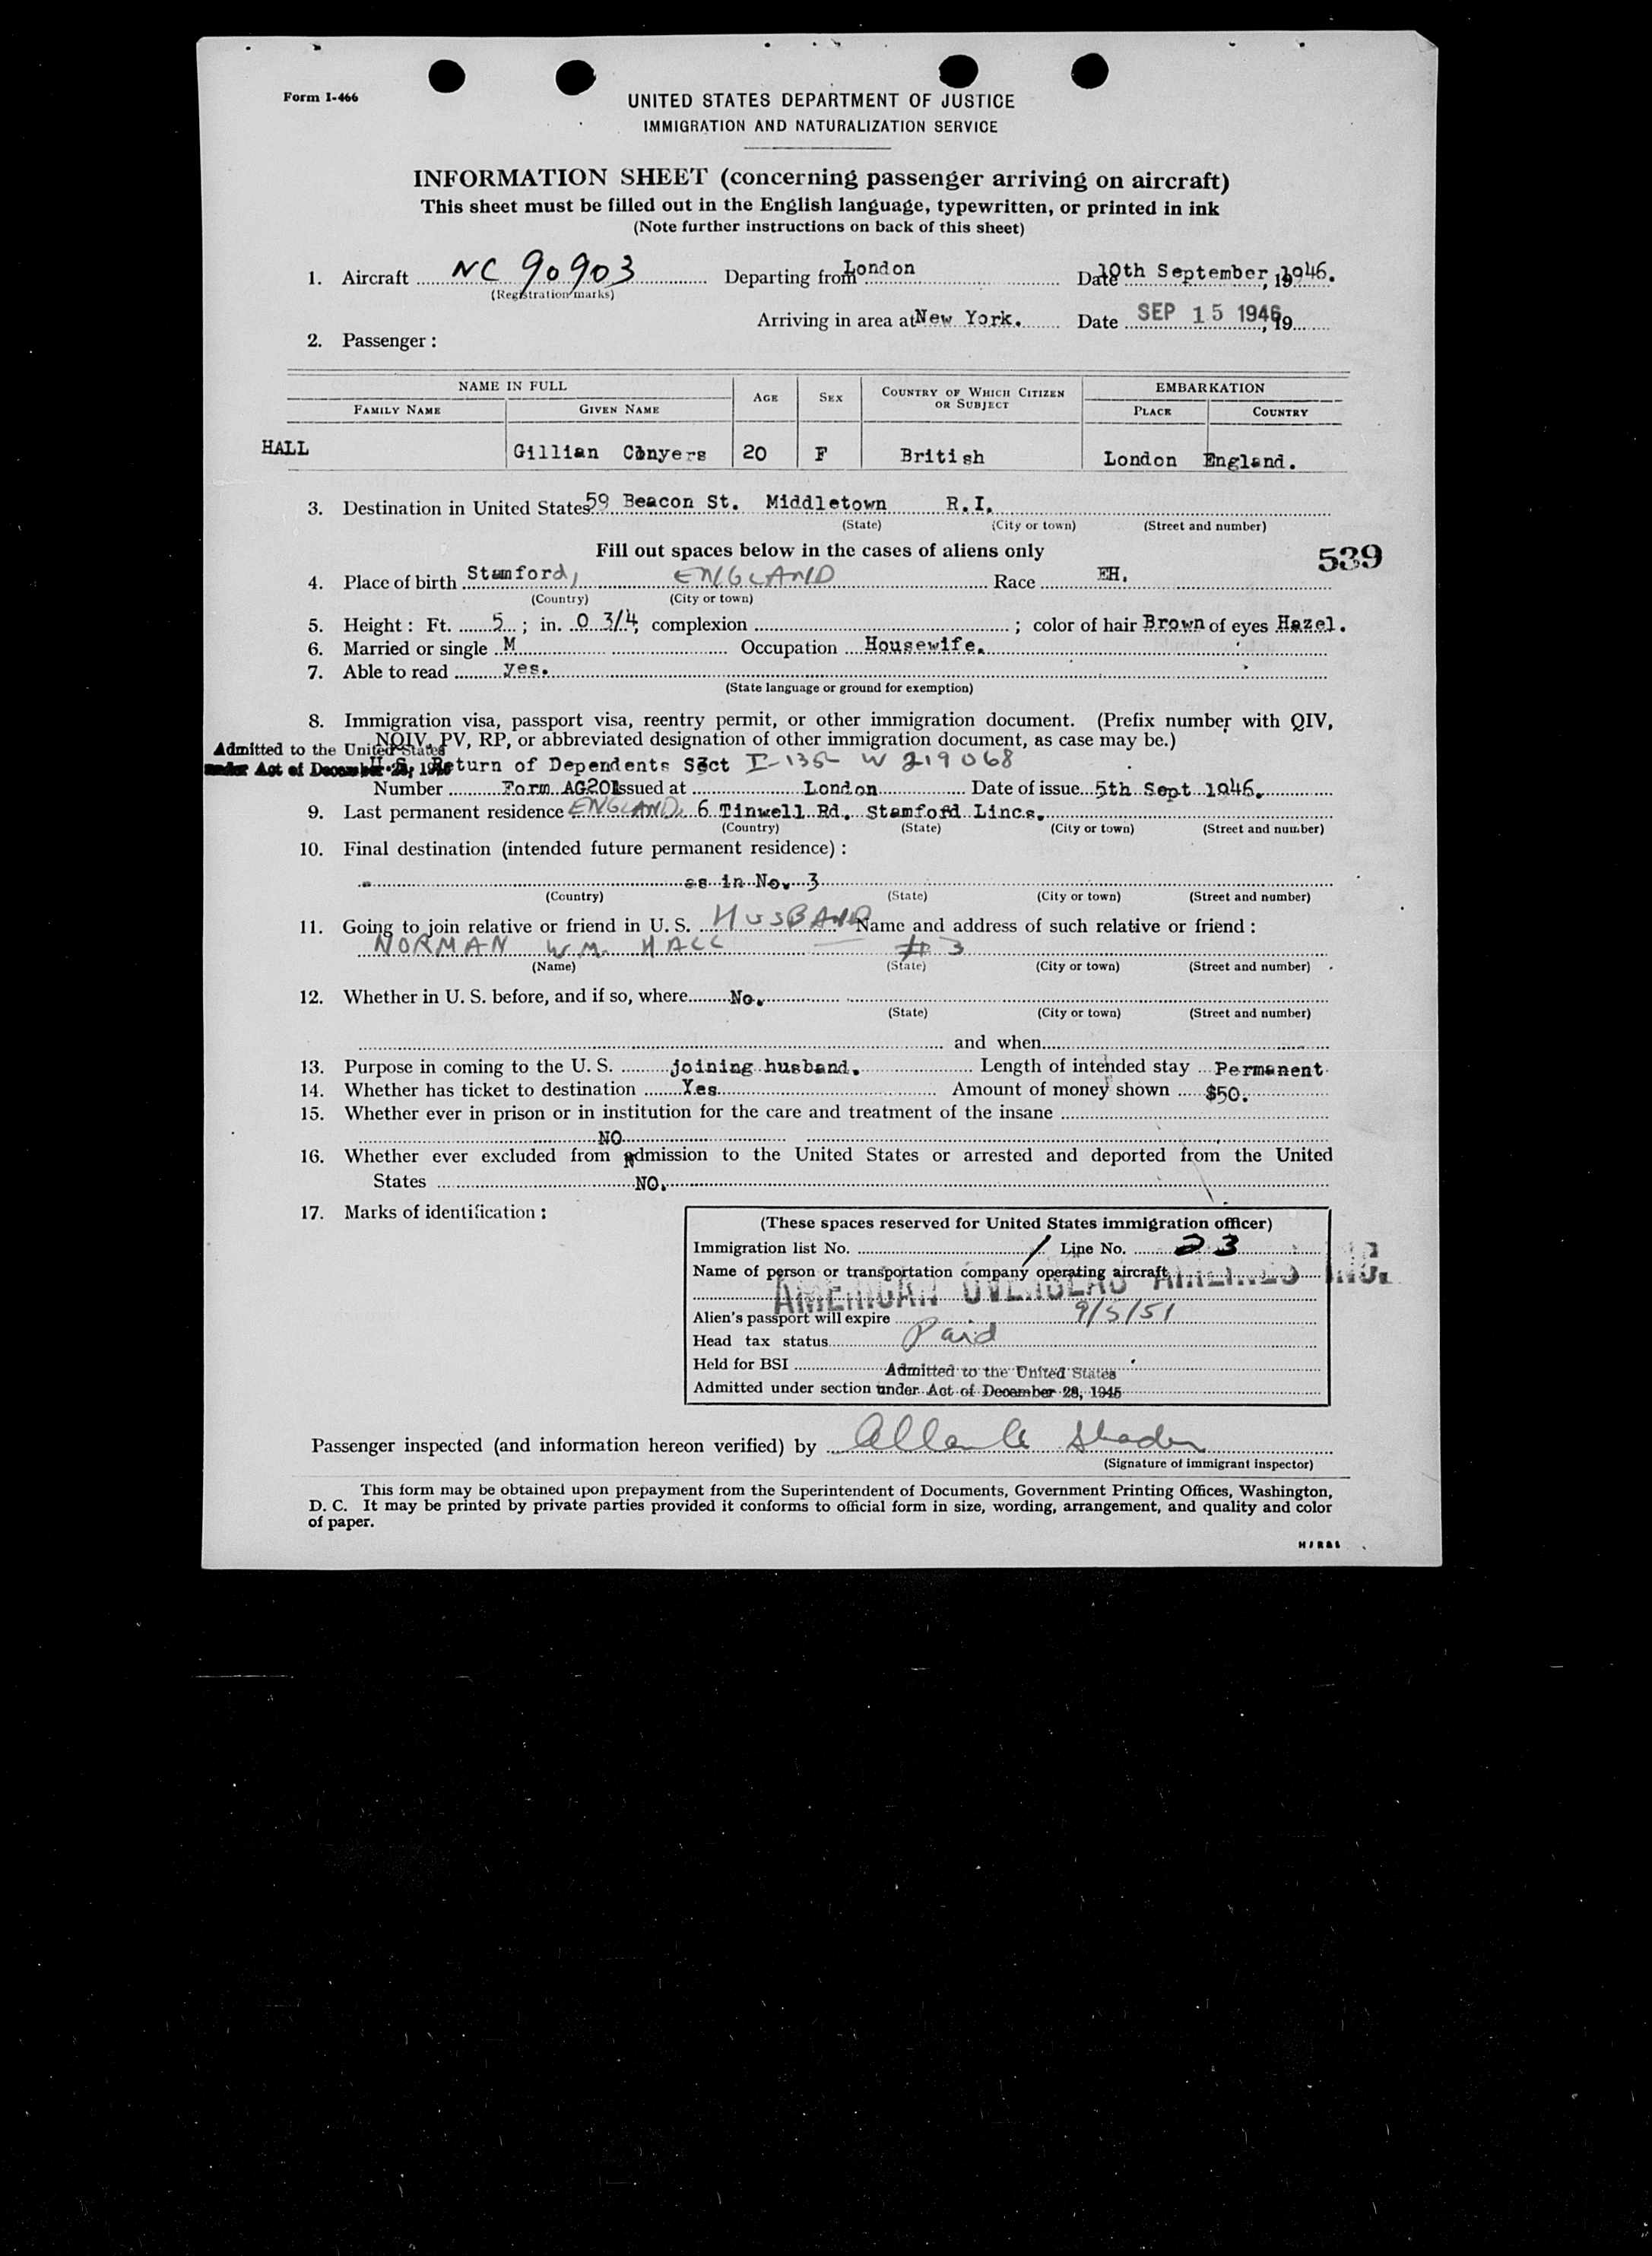 Form I-466
UNITED STATES DEPARTMENT OF JUSTICE
IMMIGRATION AND NATURALIZATION SERVICE
INFORMATION SHEET (concerning passenger arriving on aircraft)
This sheet must be filled out in the English language, typewritten, or printed in ink
(Note further instructions on back of this sheet)
1. Aircraft NC 90903 Departing from London Date 10th September, 1946.
(Registration marks)
Arriving in area at New York. Date SEP 15 1946, 19
2. Passenger:
NAME IN FULL AGE SEX COUNTRY OF WHICH CITIZEN OR SUBJECT EMBARKATION
FAMILY NAME GIVEN NAME PLACE COUNTRY
HALL Gillian Conyers 20 F British London England.
3. Destination in United States 59 Beacon St. Middletown R.I.
(State) (City or town) (Street and number)
Fill out spaces below in the cases of aliens only 539
4. Place of birth Stamford, ENGLAND Race EH.
(Country) (City or town)
5. Height: Ft. 5 ; in. 0 3/4, complexion ; color of hair Brown of eyes Hazel.
6. Married or single M Occupation Housewife.
7. Able to read yes.
(State language or ground for exemption)
8. Immigration visa, passport visa, reentry permit, or other immigration document. (Prefix number with QIV,
NQIV, PV, RP, or abbreviated designation of other immigration document, as case may be.)
Admitted to the United States
under Act of December 28, 1945
U.S. Return of Dependents Sect I-135 W 219068
Number Form AG201 Issued at London Date of issue 5th Sept 1946.
9. Last permanent residence ENGLAND. 6 Tinwell Rd. Stamford Lincs.
(Country) (State) (City or town) (Street and number)
10. Final destination (intended future permanent residence):
as in No. 3
(Country) (State) (City or town) (Street and number)
11. Going to join relative or friend in U. S. HUSBAND Name and address of such relative or friend:
NORMAN WM. HALL — # 3
(Name) (State) (City or town) (Street and number)
12. Whether in U. S. before, and if so, where No.
(State) (City or town) (Street and number)
and when
13. Purpose in coming to the U. S. joining husband. Length of intended stay Permanent
14. Whether has ticket to destination Yes Amount of money shown $50.
15. Whether ever in prison or in institution for the care and treatment of the insane
NO
16. Whether ever excluded from admission to the United States or arrested and deported from the United
States NO.
17. Marks of identification:
(These spaces reserved for United States immigration officer)
Immigration list No. 1 Line No. 23
Name of person or transportation company operating aircraft
AMERICAN OVERSEAS AIRLINES INC.
Alien's passport will expire 9/5/51
Head tax status Paid
Held for BSI
Admitted to the United States
Admitted under section under Act of December 28, 1945
Passenger inspected (and information hereon verified) by
(Signature of immigrant inspector)
This form may be obtained upon prepayment from the Superintendent of Documents, Government Printing Offices, Washington,
D. C. It may be printed by private parties provided it conforms to official form in size, wording, arrangement, and quality and color
of paper.